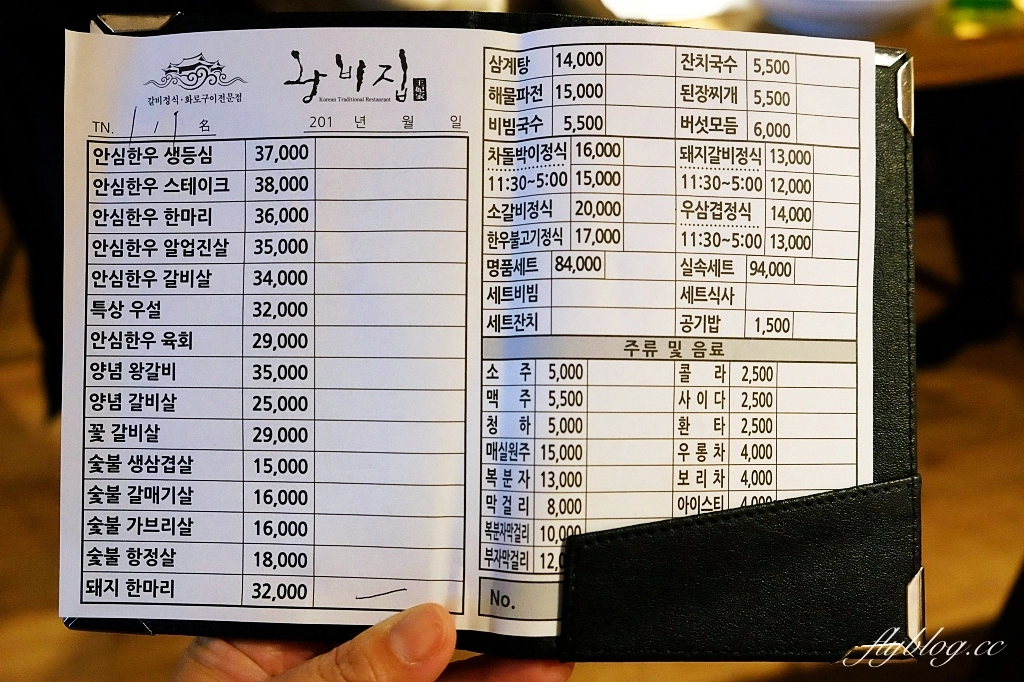 왕비집
Korean Traditional Restaurant
갈비정식·화로구이전문점
TN. 1 / 1 名
201 년 월 일
안심한우 생등심 37,000
안심한우 스테이크 38,000
안심한우 한마리 36,000
안심한우 알업진살 35,000
안심한우 갈비살 34,000
특상 우설 32,000
안심한우 육회 29,000
양념 왕갈비 35,000
양념 갈비살 25,000
꽃 갈비살 29,000
숯불 생삼겹살 15,000
숯불 갈매기살 16,000
숯불 가브리살 16,000
숯불 항정살 18,000
돼지 한마리 32,000
삼계탕 14,000 잔치국수 5,500
해물파전 15,000 된장찌개 5,500
비빔국수 5,500 버섯모듬 6,000
차돌박이정식 16,000 돼지갈비정식 13,000
11:30~5:00 15,000 11:30~5:00 12,000
소갈비정식 20,000 우삼겹정식 14,000
한우불고기정식 17,000 11:30~5:00 13,000
명품세트 84,000 실속세트 94,000
세트비빔 세트식사
세트잔치 공기밥 1,500
주류 및 음료
소 주 5,000 콜 라 2,500
맥 주 5,500 사이다 2,500
청 하 5,000 환 타 2,500
매실원주 15,000 우롱차 4,000
복분자 13,000 보리차 4,000
막걸리 8,000 아이스티 4,000
복분자막걸리 10,000
부자막걸리 12,0
No.
flyblog.cc